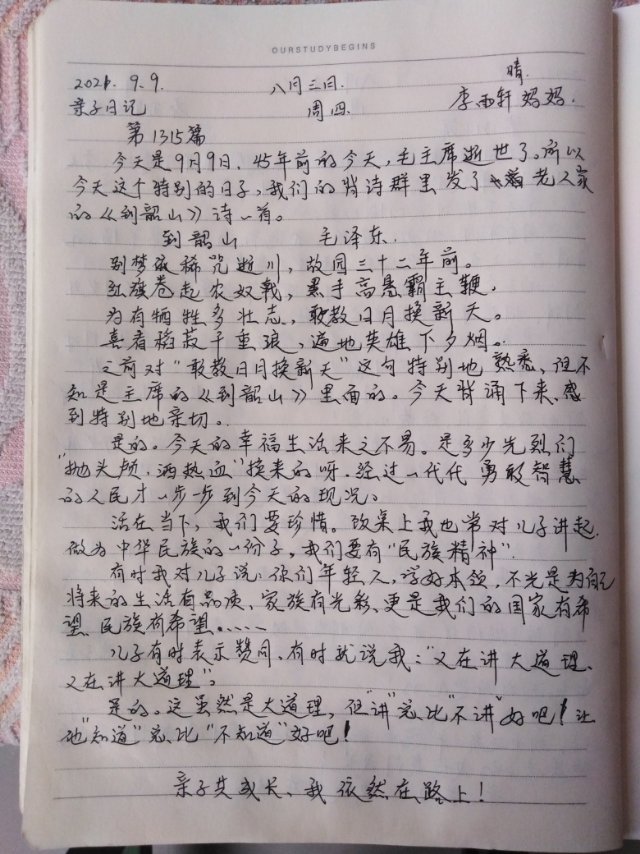 OURSTUDYBEGINS
2021.9.9. 八月三日. 晴.
亲子日记 周四. 李雨轩妈妈.
第1315篇
今天是9月9日.45年前的今天,毛主席逝世了。所以
今天这个特别的日子,我们的背诗群里发了老人家
的《到韶山》诗一首。
到韶山 毛泽东.
别梦依稀咒逝川,故园三十二年前。
红旗卷起农奴戟,黑手高悬霸主鞭.
为有牺牲多壮志,敢教日月换新天。
喜看稻菽千重浪,遍地英雄下夕烟。
之前对"敢教日月换新天"这句特别地熟悉,但不
知是主席的《到韶山》里面的。今天背诵下来,感
到特别地亲切。
是的。今天的幸福生活来之不易。是多少先烈们
"抛头颅,洒热血"换来的呀.经过一代代勇敢智慧
的人民才一步一步到今天的现况。
活在当下,我们要珍惜.饭桌上我也常对儿子讲起.
做为中华民族的一份子,我们要有"民族精神"
有时我对儿子说:你们年轻人,学好本领,不光是为自己
将来的生活有品质、家族有光彩,更是我们的国家有希
望、民族有希望......
儿子有时表示赞同、有时就说我:"又在讲大道理、
又在讲大道理"。
是的。这虽然是大道理,但"讲"总比"不讲"好吧!让
他"知道"总比"不知道"好吧!
亲子共成长、我依然在路上!